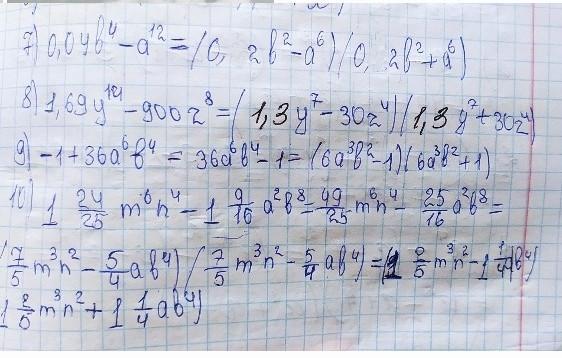 7) 0,04b⁴ - a¹² = (0, 2b² - a⁶)(0, 2b² + a⁶)
8) 1,69y¹⁴ - 900z⁸ = (1,3y⁷ - 30z⁴)(1,3y⁷ + 30z⁴)
9) -1 + 36a⁶b⁴ = 36a⁶b⁴ - 1 = (6a³b² - 1)(6a³b² + 1)
10) 1 24/25 m⁶n⁴ - 1 9/16 a²b⁸ = 49/25 m⁶n⁴ - 25/16 a²b⁸ =
(7/5 m³n² - 5/4 ab⁴)(7/5 m³n² - 5/4 ab⁴) = (1 2/5 m³n² - 1 1/4 ab⁴)
1 2/5 m³n² + 1 1/4 ab⁴)